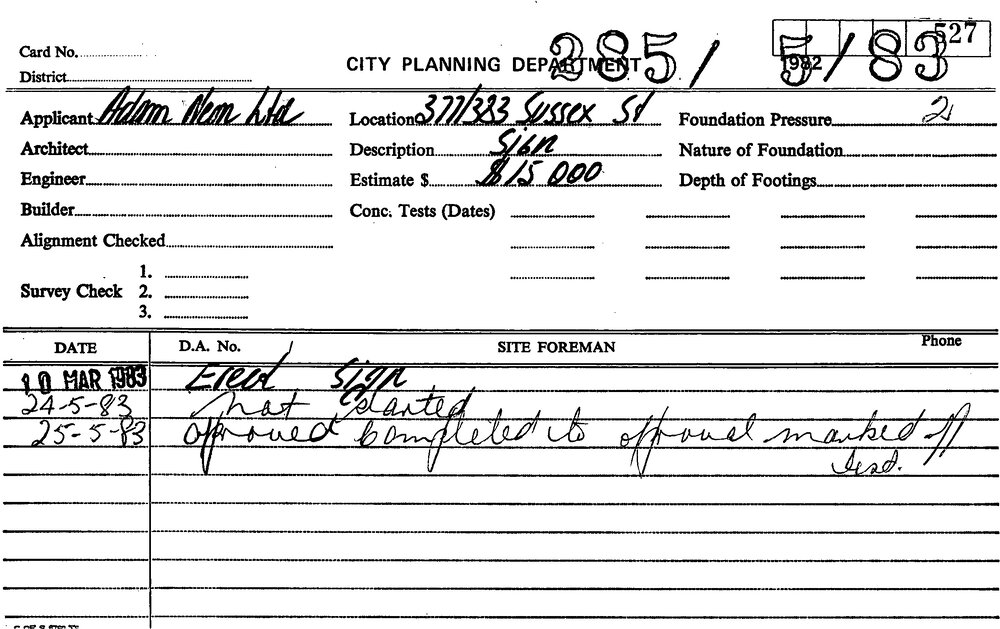 Card No.
District
CITY PLANNING DEPARTMENT
285/ 5/83
527
1982
Applicant Adam Nem Ltd
Location 377/383 Sussex St
Foundation Pressure 2
Architect
Description Sign
Nature of Foundation
Engineer
Estimate $ $15 000
Depth of Footings
Builder
Conc. Tests (Dates)
Alignment Checked
Survey Check
1.
2.
3.
DATE
D.A. No.
SITE FOREMAN
Phone
10 MAR 1983 Erect Sign
24-5-83 not started
25-5-83 approved completed to approval marked off